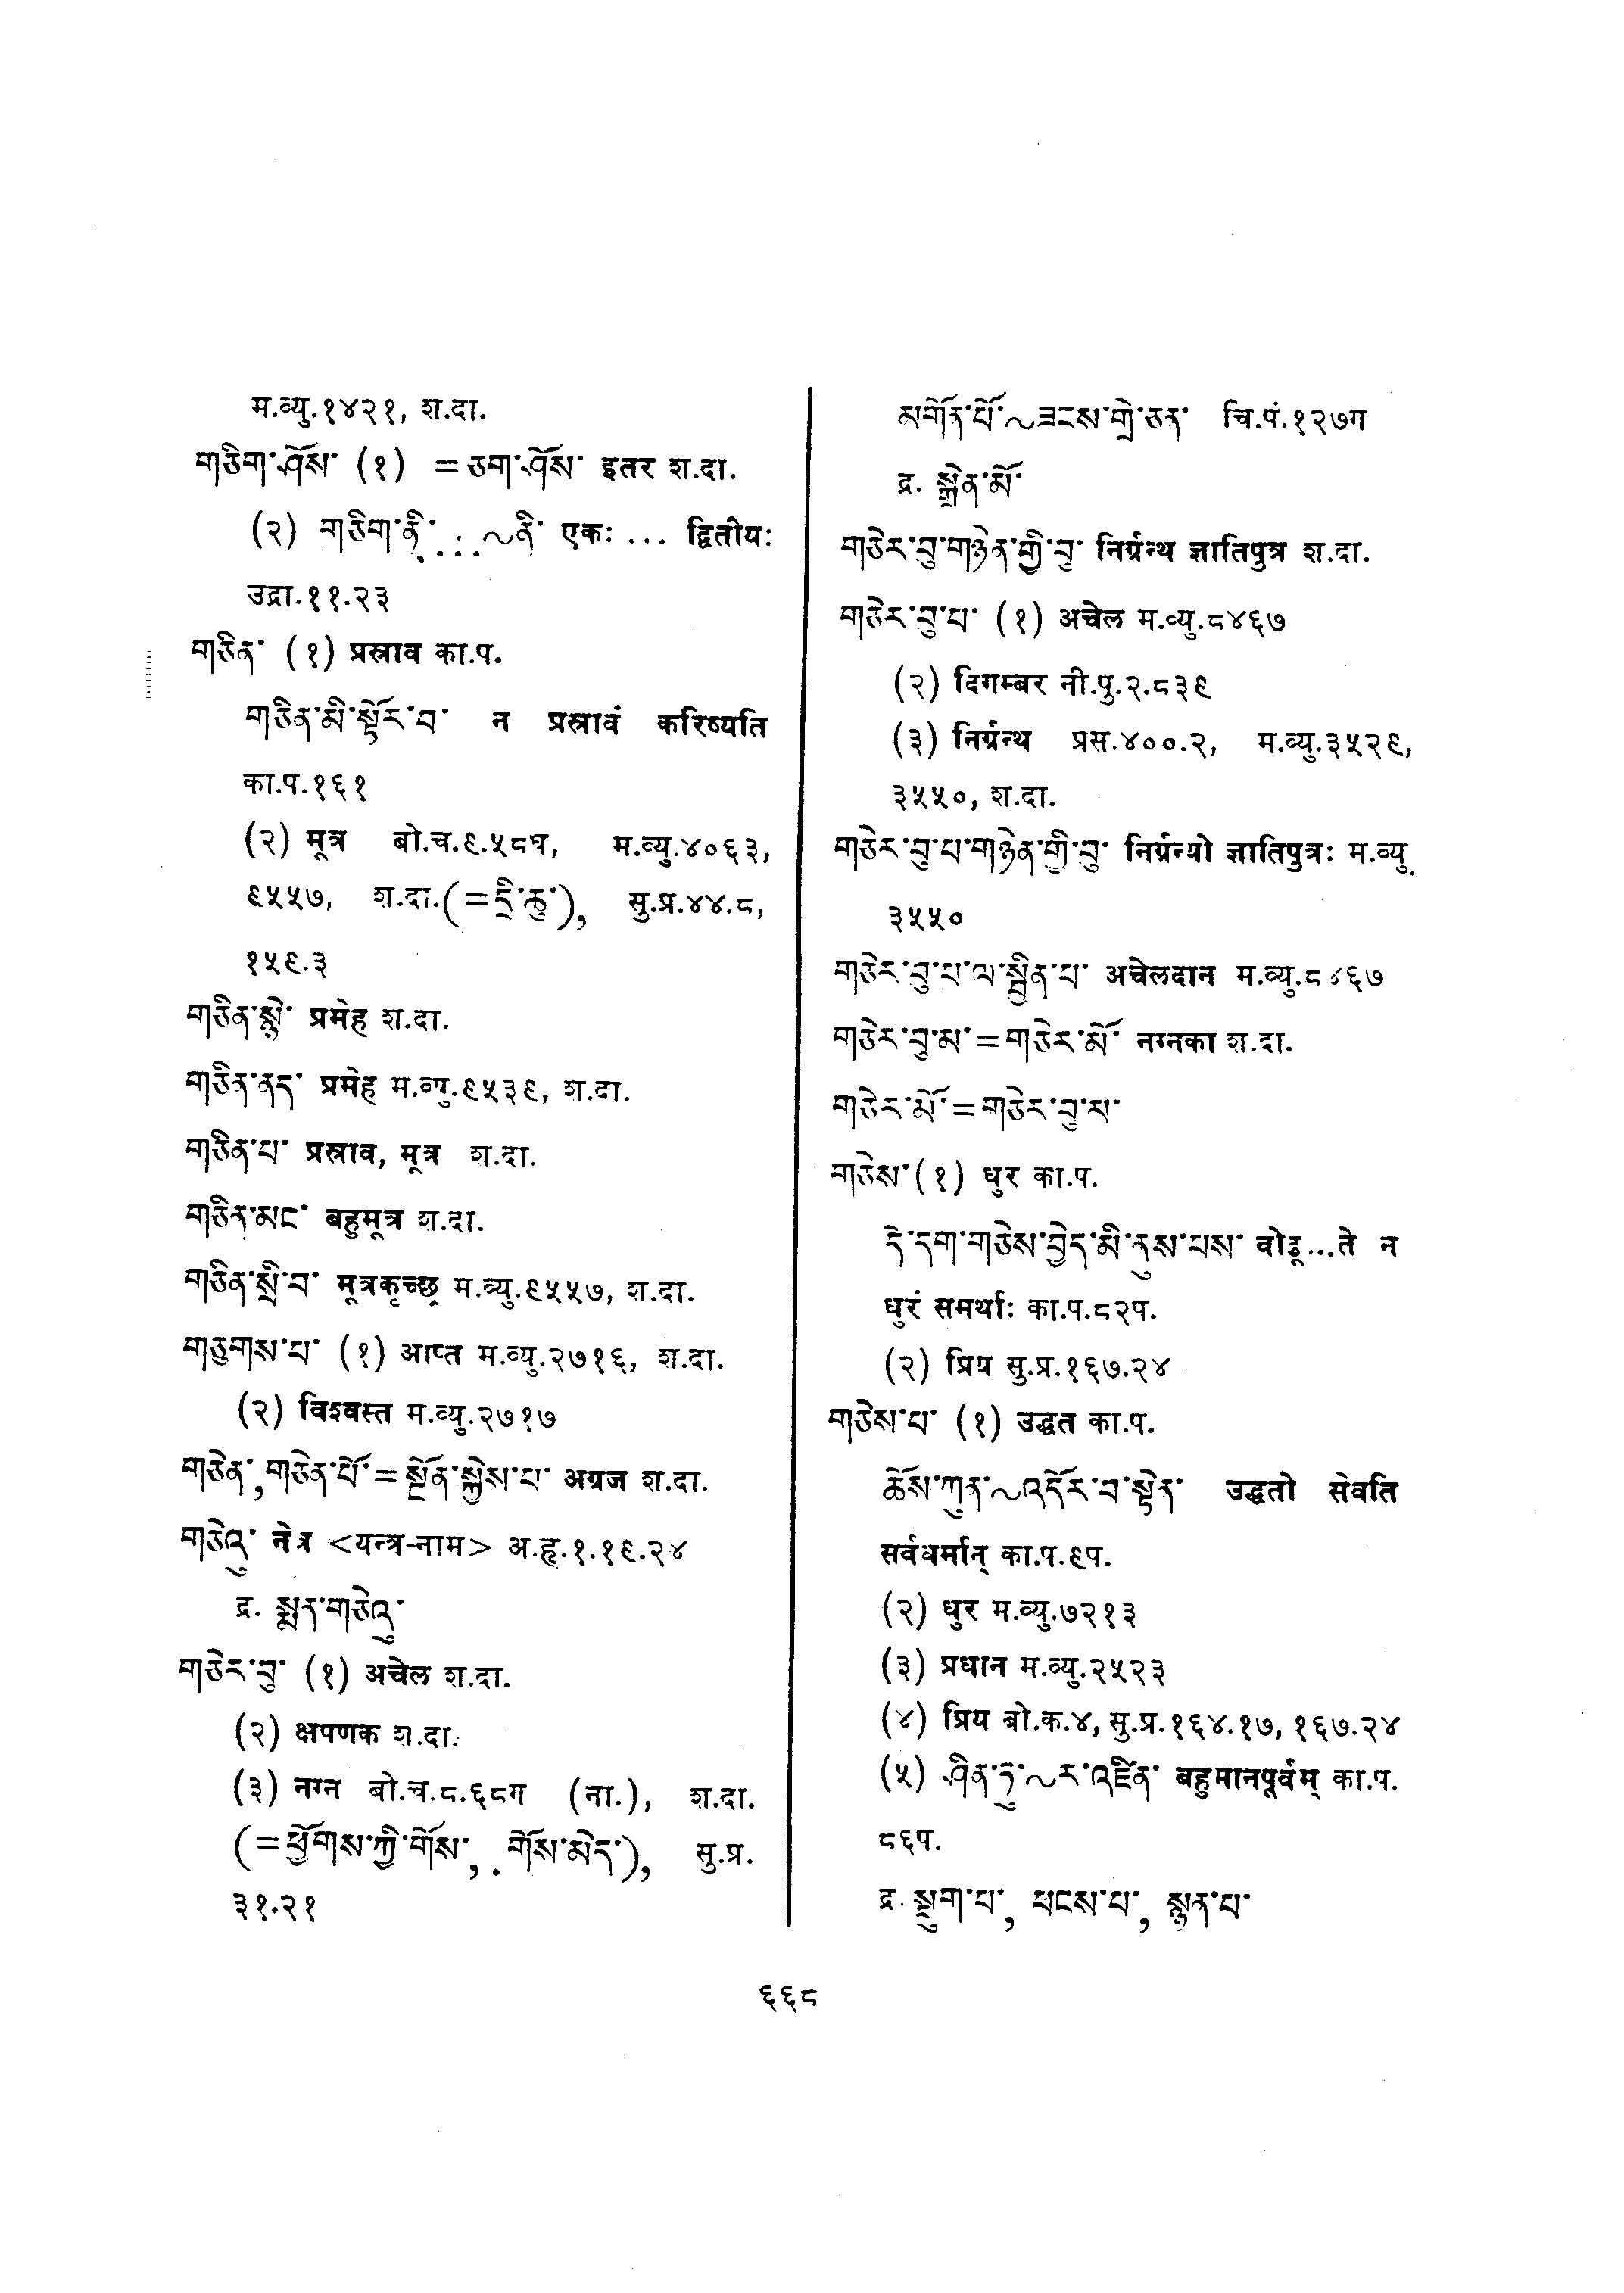 म.व्यु.१४२१, श.दा.
གཅིག་ཤོས་ (१) =ཅག་ཤོས་ इतर श.दा.
(२) གཅིག་ནི་...~ནི་ एकः ... द्वितीयः
उद्रा.११.२३
གཅིན་ (१) प्रस्राव का.प.
གཅིན་མི་སྟོར་བ་ न प्रस्रावं करिष्यति
का.प.१६१
(२) मूत्र बो.च.९.५८घ, म.व्यु.४०६३,
९५५७, श.दा.(=དྲི་ཆུ་), सु.प्र.४४.८,
१५९.३
གཅིན་སྙེ་ प्रमेह श.दा.
གཅིན་ནད་ प्रमेह म.व्यु.९५३९, श.दा.
གཅིན་པ་ प्रस्राव, मूत्र श.दा.
གཅིན་མང་ बहुमूत्र श.दा.
གཅིན་སྲི་བ་ मूत्रकृच्छ्र म.व्यु.९५५७, श.दा.
གཅུགས་པ་ (१) आप्त म.व्यु.२७१६, श.दा.
(२) विश्वस्त म.व्यु.२७१७
གཅེན་,གཅེན་པོ་=སྔོན་སྐྱེས་པ་ अग्रज श.दा.
གཅེའུ་ नेत्र <यन्त्र-नाम> अ.हृ.१.१९.२४
द्र. སྨན་གཅེའུ་
གཅེར་བུ་ (१) अचेल श.दा.
(२) क्षपणक श.दा.
(३) नग्न बो.च.८.६८ग (ना.), श.दा.
(=ཕྱོགས་ཀྱི་གོས་, གོས་མེད་), सु.प्र.
३१.२१
མགོན་པོ་~ཟངས་གྲེ་ཅན་ चि.पं.१२७ग
द्र. སྒྲེན་མོ་
གཅེར་བུ་གཉེན་གྱི་བུ་ निर्ग्रन्थ ज्ञातिपुत्र श.दा.
གཅེར་བུ་པ་ (१) अचेल म.व्यु.८४६७
(२) दिगम्बर नी.पु.२.८३९
(३) निर्ग्रन्थ प्रस.४००.२, म.व्यु.३५२९,
३५५०, श.दा.
གཅེར་བུ་པ་གཉེན་གྱི་བུ་ निर्ग्रन्यो ज्ञातिपुत्रः म.व्यु.
३५५०
གཅེར་བུ་པ་ལ་སྦྱིན་པ་ अचेलदान म.व्यु.८४६७
གཅེར་བུ་མ་=གཅེར་མོ་ नग्नका श.दा.
གཅེར་མོ་=གཅེར་བུ་མ་
གཅེས་(१) धुर का.प.
དེ་དག་གཅེས་བྱེད་མི་ནུས་པས་ वोढू...ते न
धुरं समर्थाः का.प.८२प.
(२) प्रिय सु.प्र.१६७.२४
གཅེས་པ་ (१) उद्धत का.प.
ཆོས་ཀུན་~འདོར་བ་སྟེན་ उद्धतो सेवति
सर्वधर्मान् का.प.९प.
(२) धुर म.व्यु.७२१३
(३) प्रधान म.व्यु.२५२३
(४) प्रिय बो.क.४, सु.प्र.१६४.१७, १६७.२४
(५) ཤིན་ཏུ་~ར་འཛིན་ बहुमानपूर्वम् का.प.
८६प.
द्र. སྡུག་པ་, ཕངས་པ་, སྙན་པ་
६६८